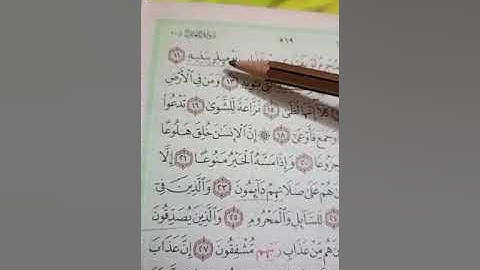 ٥٦٩
بِبَنِيهِ ١١
تُـْٔوِيهِ ١٣ وَمَن فِي الْأَرْضِ
كَلَّا إِنَّهَا لَظَىٰ ١٥ نَزَّاعَةً لِّلشَّوَىٰ ١٦ تَدْعُوا
وَجَمَعَ فَأَوْعَىٰ ١٨ ۞ إِنَّ الْإِنسَٰنَ خُلِقَ هَلُوعًا
جَزُوعًا ٢٠ وَإِذَا مَسَّهُ الْخَيْرُ مَنُوعًا ٢١ إِلَّا
هُمْ عَلَىٰ صَلَاتِهِمْ دَآئِمُونَ ٢٣ وَالَّذِينَ فِي
٢٤ لِّلسَّآئِلِ وَالْمَحْرُومِ ٢٥ وَالَّذِينَ يُصَدِّقُونَ
هُم مِّنْ عَذَابِ رَبِّهِم مُّشْفِقُونَ ٢٧ إِنَّ عَذَابَ